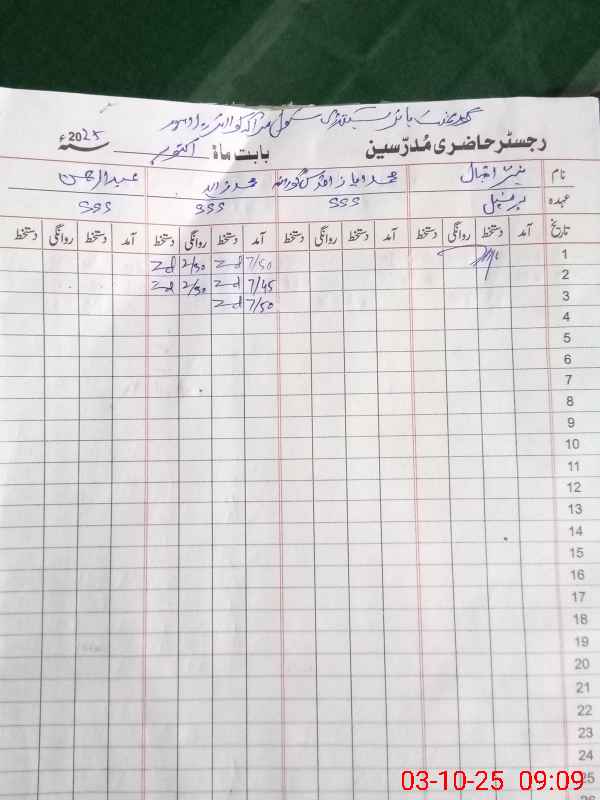 گورنمنٹ ہائر سیکنڈری سکول
رجسٹر حاضری مُدرّسین بابت ماہ اکتوبر سنہ 2025ء
نام اقبال محمد محمد عبدالرحمن
عہدہ پرنسپل SSS SSS SSS
تاریخ آمد دستخط روانگی دستخط آمد دستخط روانگی دستخط آمد دستخط روانگی دستخط آمد دستخط روانگی دستخط
1 7/50 Zd 2/30 Zd
2 7/45 Zd 2/30 Zd
3 7/50 Zd
4
5
6
7
8
9
10
11
12
13
14
15
16
17
18
19
20
21
22
23
24
25
03-10-25 09:09